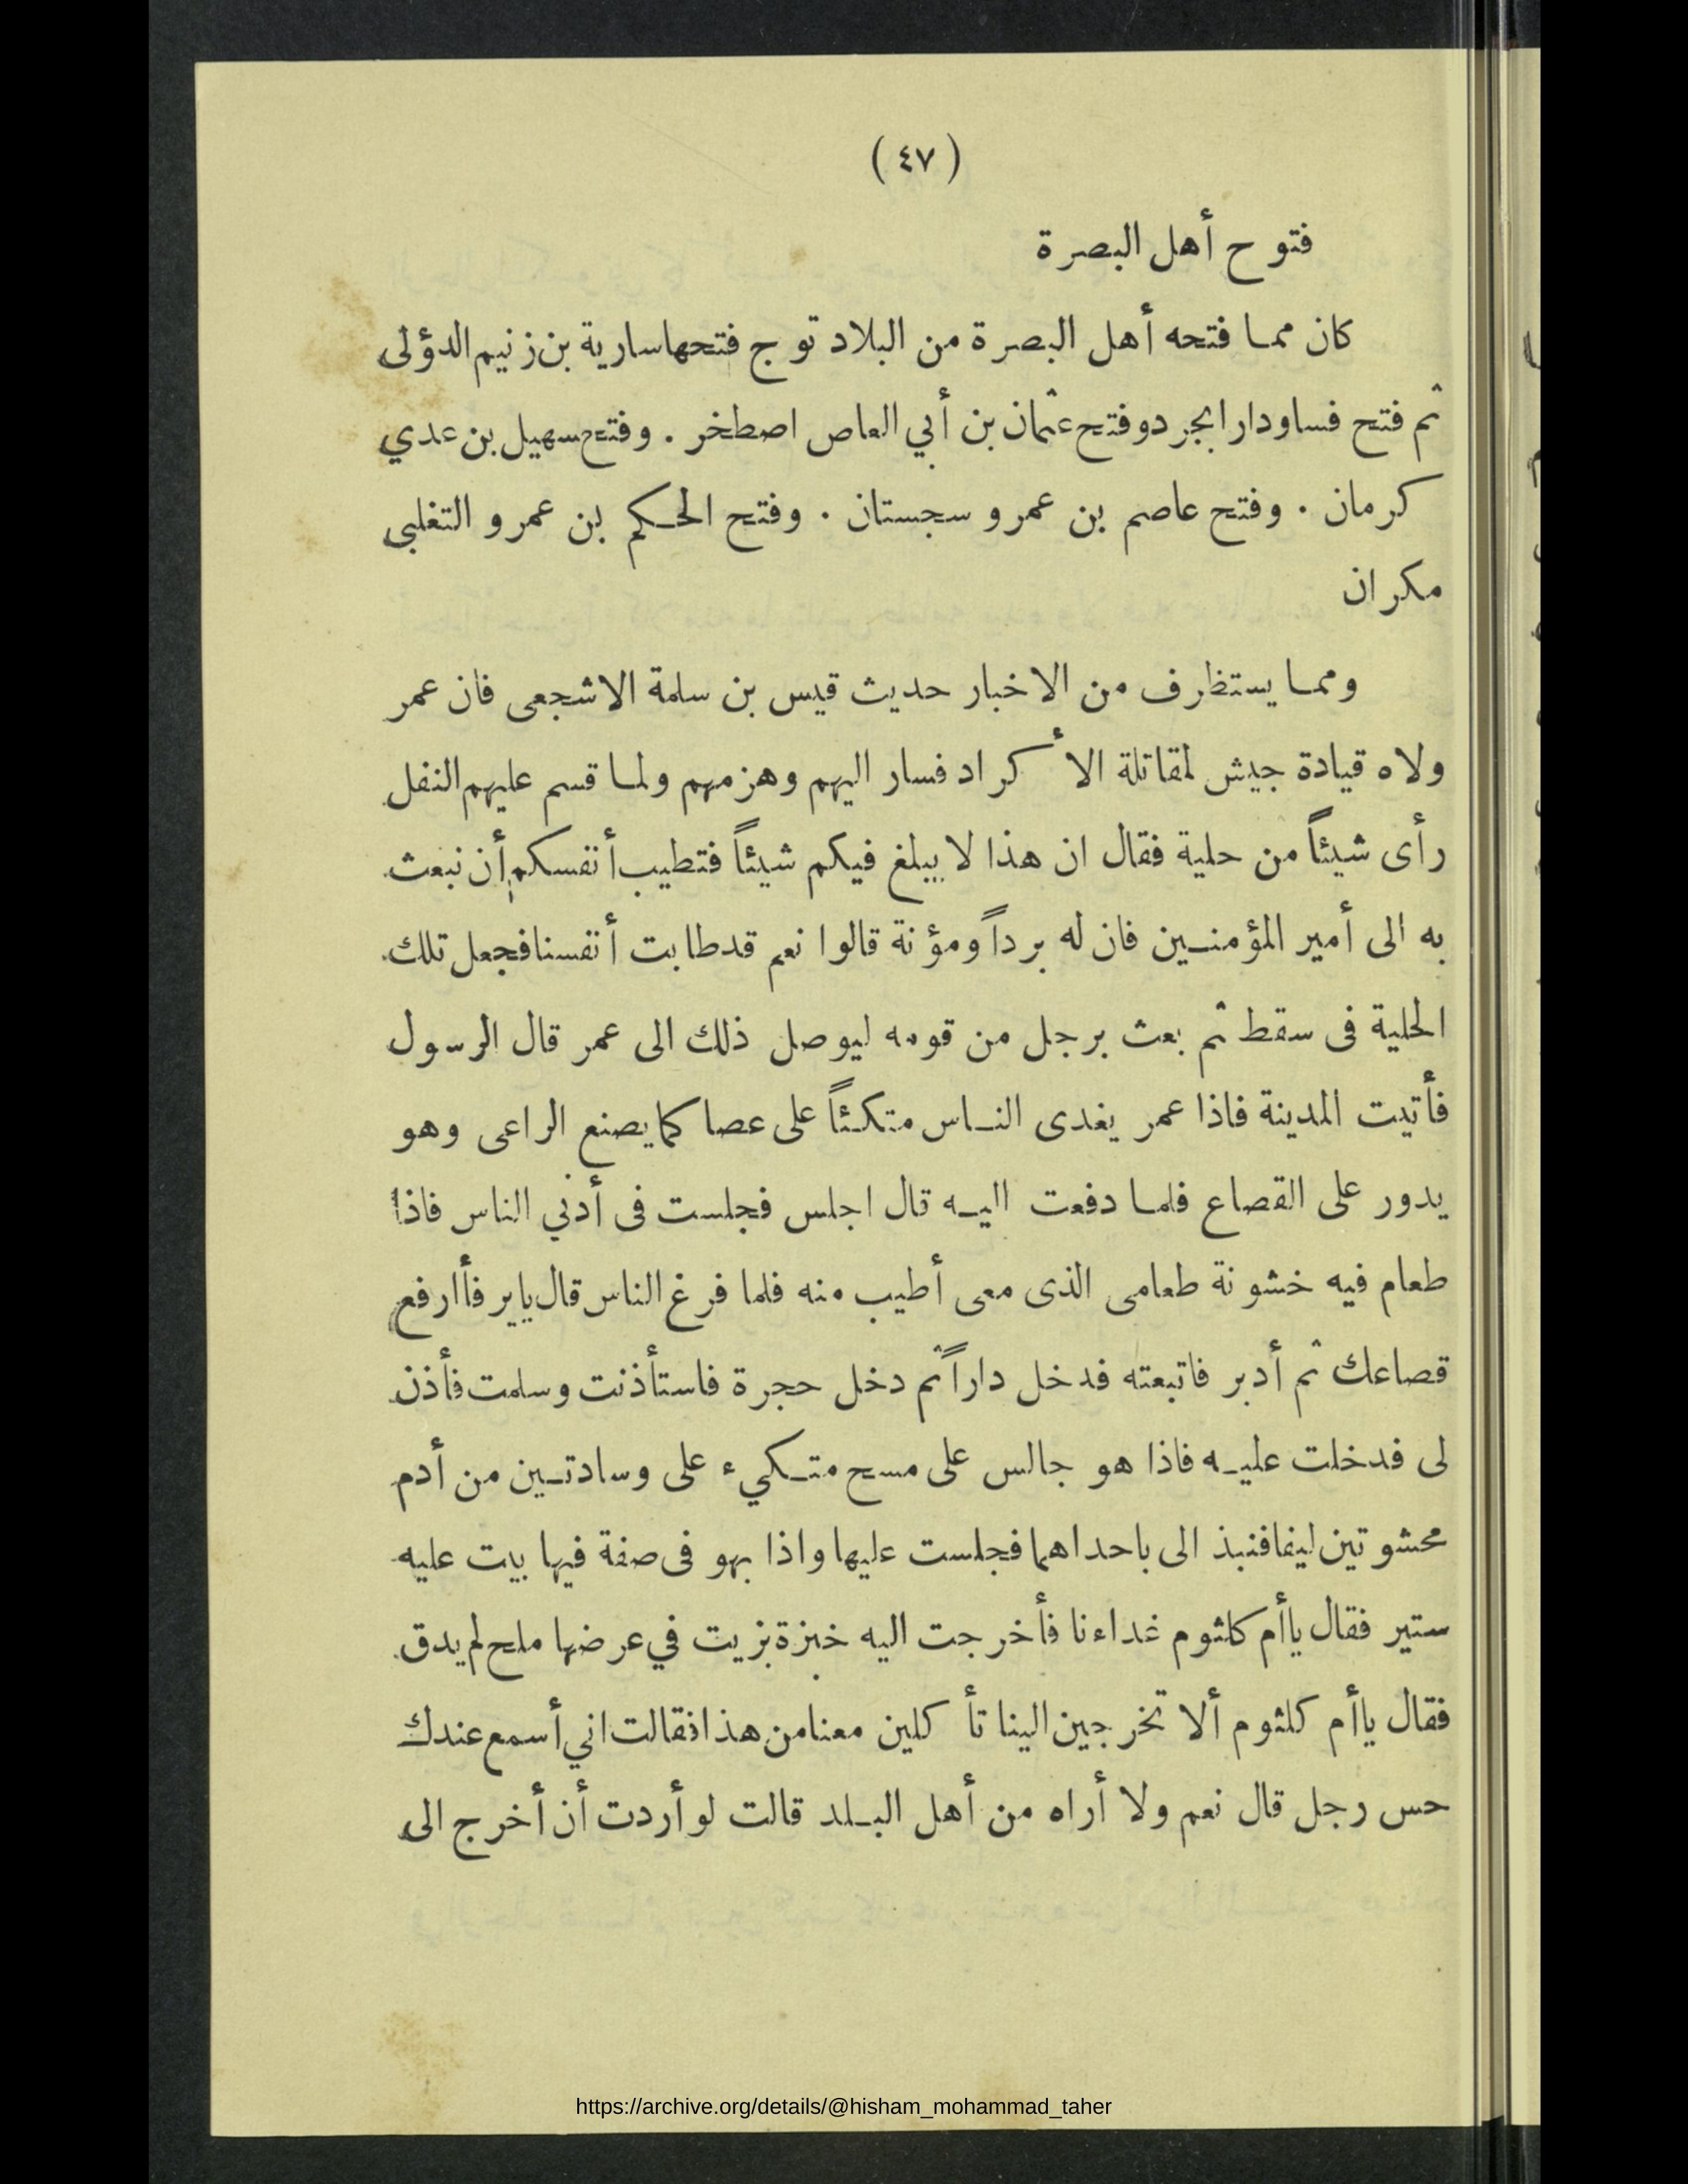 (٤٧)
فتوح أهل البصرة
كان مما فتحه أهل البصرة من البلاد توج فتحها سارية بن زنيم الدؤلى
ثم فتح فسا ودارابجرد وفتح عثمان بن أبي العاص اصطخر . وفتح سهيل بن عدي
كرمان . وفتح عاصم بن عمرو سجستان . وفتح الحكم بن عمرو التغلبى
مكران
ومما يستظرف من الاخبار حديث قيس بن سلمة الاشجعى فان عمر
ولاه قيادة جيش لمقاتلة الأكراد فسار اليهم وهزمهم ولما قسم عليهم النفل
رأى شيئاً من حلية فقال ان هذا لا يبلغ فيكم شيئاً فتطيب أنفسكم أن نبعث
به الى أمير المؤمنين فان له برداً ومؤنة قالوا نعم قد طابت أنفسنا فجعل تلك
الحلية فى سقط ثم بعث برجل من قومه ليوصل ذلك الى عمر قال الرسول
فأتيت المدينة فاذا عمر يغدى الناس متكئاً على عصا كما يصنع الراعى وهو
يدور على القصاع فلما دفعت اليه قال اجلس فجلست فى أدنى الناس فاذا
طعام فيه خشونة طعامى الذى معى أطيب منه فلما فرغ الناس قال يا يرفأ ارفع
قصاعك ثم أدبر فاتبعته فدخل داراً ثم دخل حجرة فاستأذنت وسلمت فأذن
لى فدخلت عليه فاذا هو جالس على مسح متكيء على وسادتين من أدم
محشوتين ليفا فنبذ الى باحداهما فجلست عليها واذا بهو فى صفة فيها بيت عليه
ستير فقال يا أم كلثوم غداءنا فأخرجت اليه خبزة بزيت في عرضها ملح لم يدق
فقال يا أم كلثوم ألا تخرجين الينا تأكلين معنا من هذا فقالت اني أسمع عندك
حس رجل قال نعم ولا أراه من أهل البلد قالت لو أردت أن أخرج الى
https://archive.org/details/@hisham_mohammad_taher